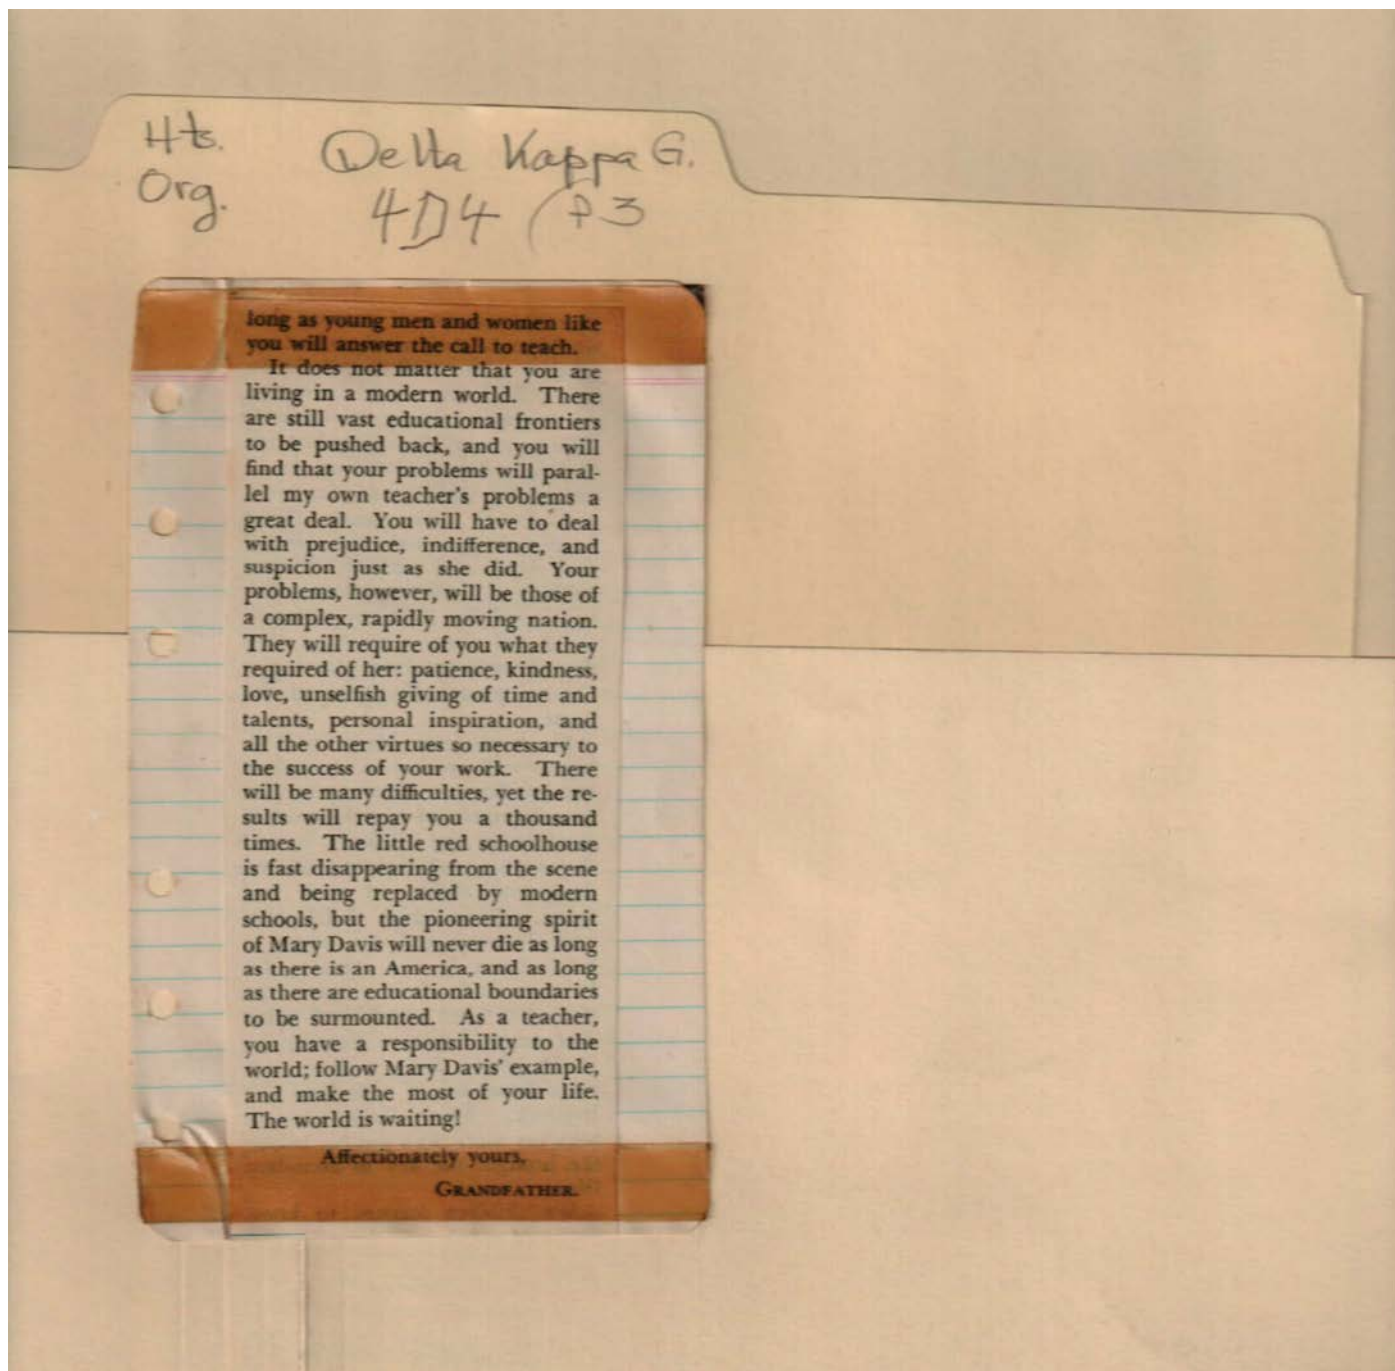 Hts.
Delta Kappa G.
Org.
4D4 (P3
long as young men and women like
you will answer the call to teach.
It does not matter that you are
living in a modern world. There
are still vast educational frontiers
to be pushed back, and you will
find that your problems will paral-
lel my own teacher's problems a
great deal. You will have to deal
with prejudice, indifference, and
suspicion just as she did. Your
problems, however, will be those of
a complex, rapidly moving nation.
They will require of you what they
required of her: patience, kindness,
love, unselfish giving of time and
talents, personal inspiration, and
all the other virtues so necessary to
the success of your work. There
will be many difficulties, yet the re-
sults will repay you a thousand
times. The little red schoolhouse
is fast disappearing from the scene
and being replaced by modern
schools, but the pioneering spirit
of Mary Davis will never die as long
as there is an America, and as long
as there are educational boundaries
to be surmounted. As a teacher,
you have a responsibility to the
world; follow Mary Davis' example,
and make the most of your life.
The world is waiting!
Affectionately yours,
GRANDFATHER.